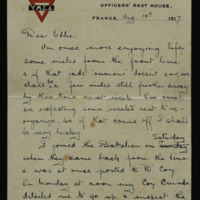 Y.M.C.A.
OFFICERS' REST HOUSE,
FRANCE, Aug. 1917
Dear Eddie.
Am once more enjoying life
some miles from the front line &
if that jade rumour doesn't err, we
shall be a few miles still further away
by this time next week. For our
expecting some week's rest to
organise, so if that comes off I shall
be very lucky.
Saturday
I joined the Battalion on Sunday
when they came back from the line
& was at once posted to D Coy.
On Monday at noon my Coy Comdr
detailed me to go up & inspect the